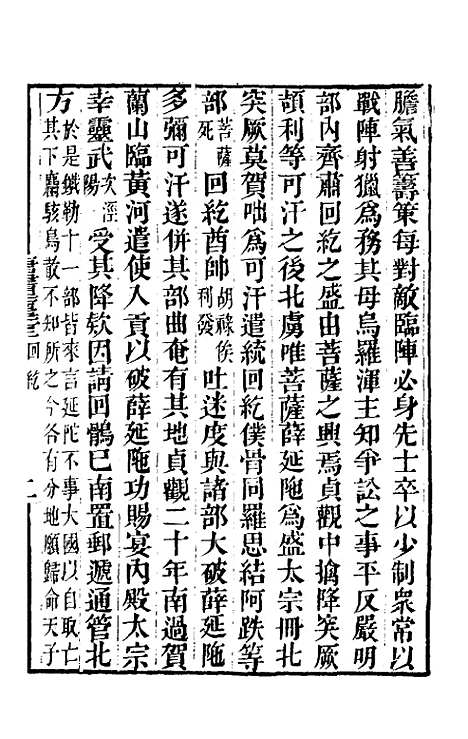 膽氣善籌策每對敵臨陣必身先士卒以少制衆常以
戰陣射獵爲務其母烏羅渾主知爭訟之事平反嚴明
部內齊肅回紇之盛由菩薩之興焉貞觀中擒降突厥
頡利等可汗之後北虜唯菩薩薛延陁爲盛太宗冊北
突厥莫賀咄爲可汗遣統回紇僕骨同羅思結阿跌等
部菩薩死回紇酋帥胡祿俟利發吐迷度與諸部大破薛延陁
多彌可汗遂併其部曲奄有其地貞觀二十年南過賀
蘭山臨黃河遣使入貢以破薛延陁功賜宴內殿太宗
幸靈武次涇陽受其降欵因請回鶻已南置郵遞通管北
方於是鐵勒十一部皆來言延陀不事大國以自取亡其下麕駭鳥散不知所之今各有分地願歸命天子
回紇
二